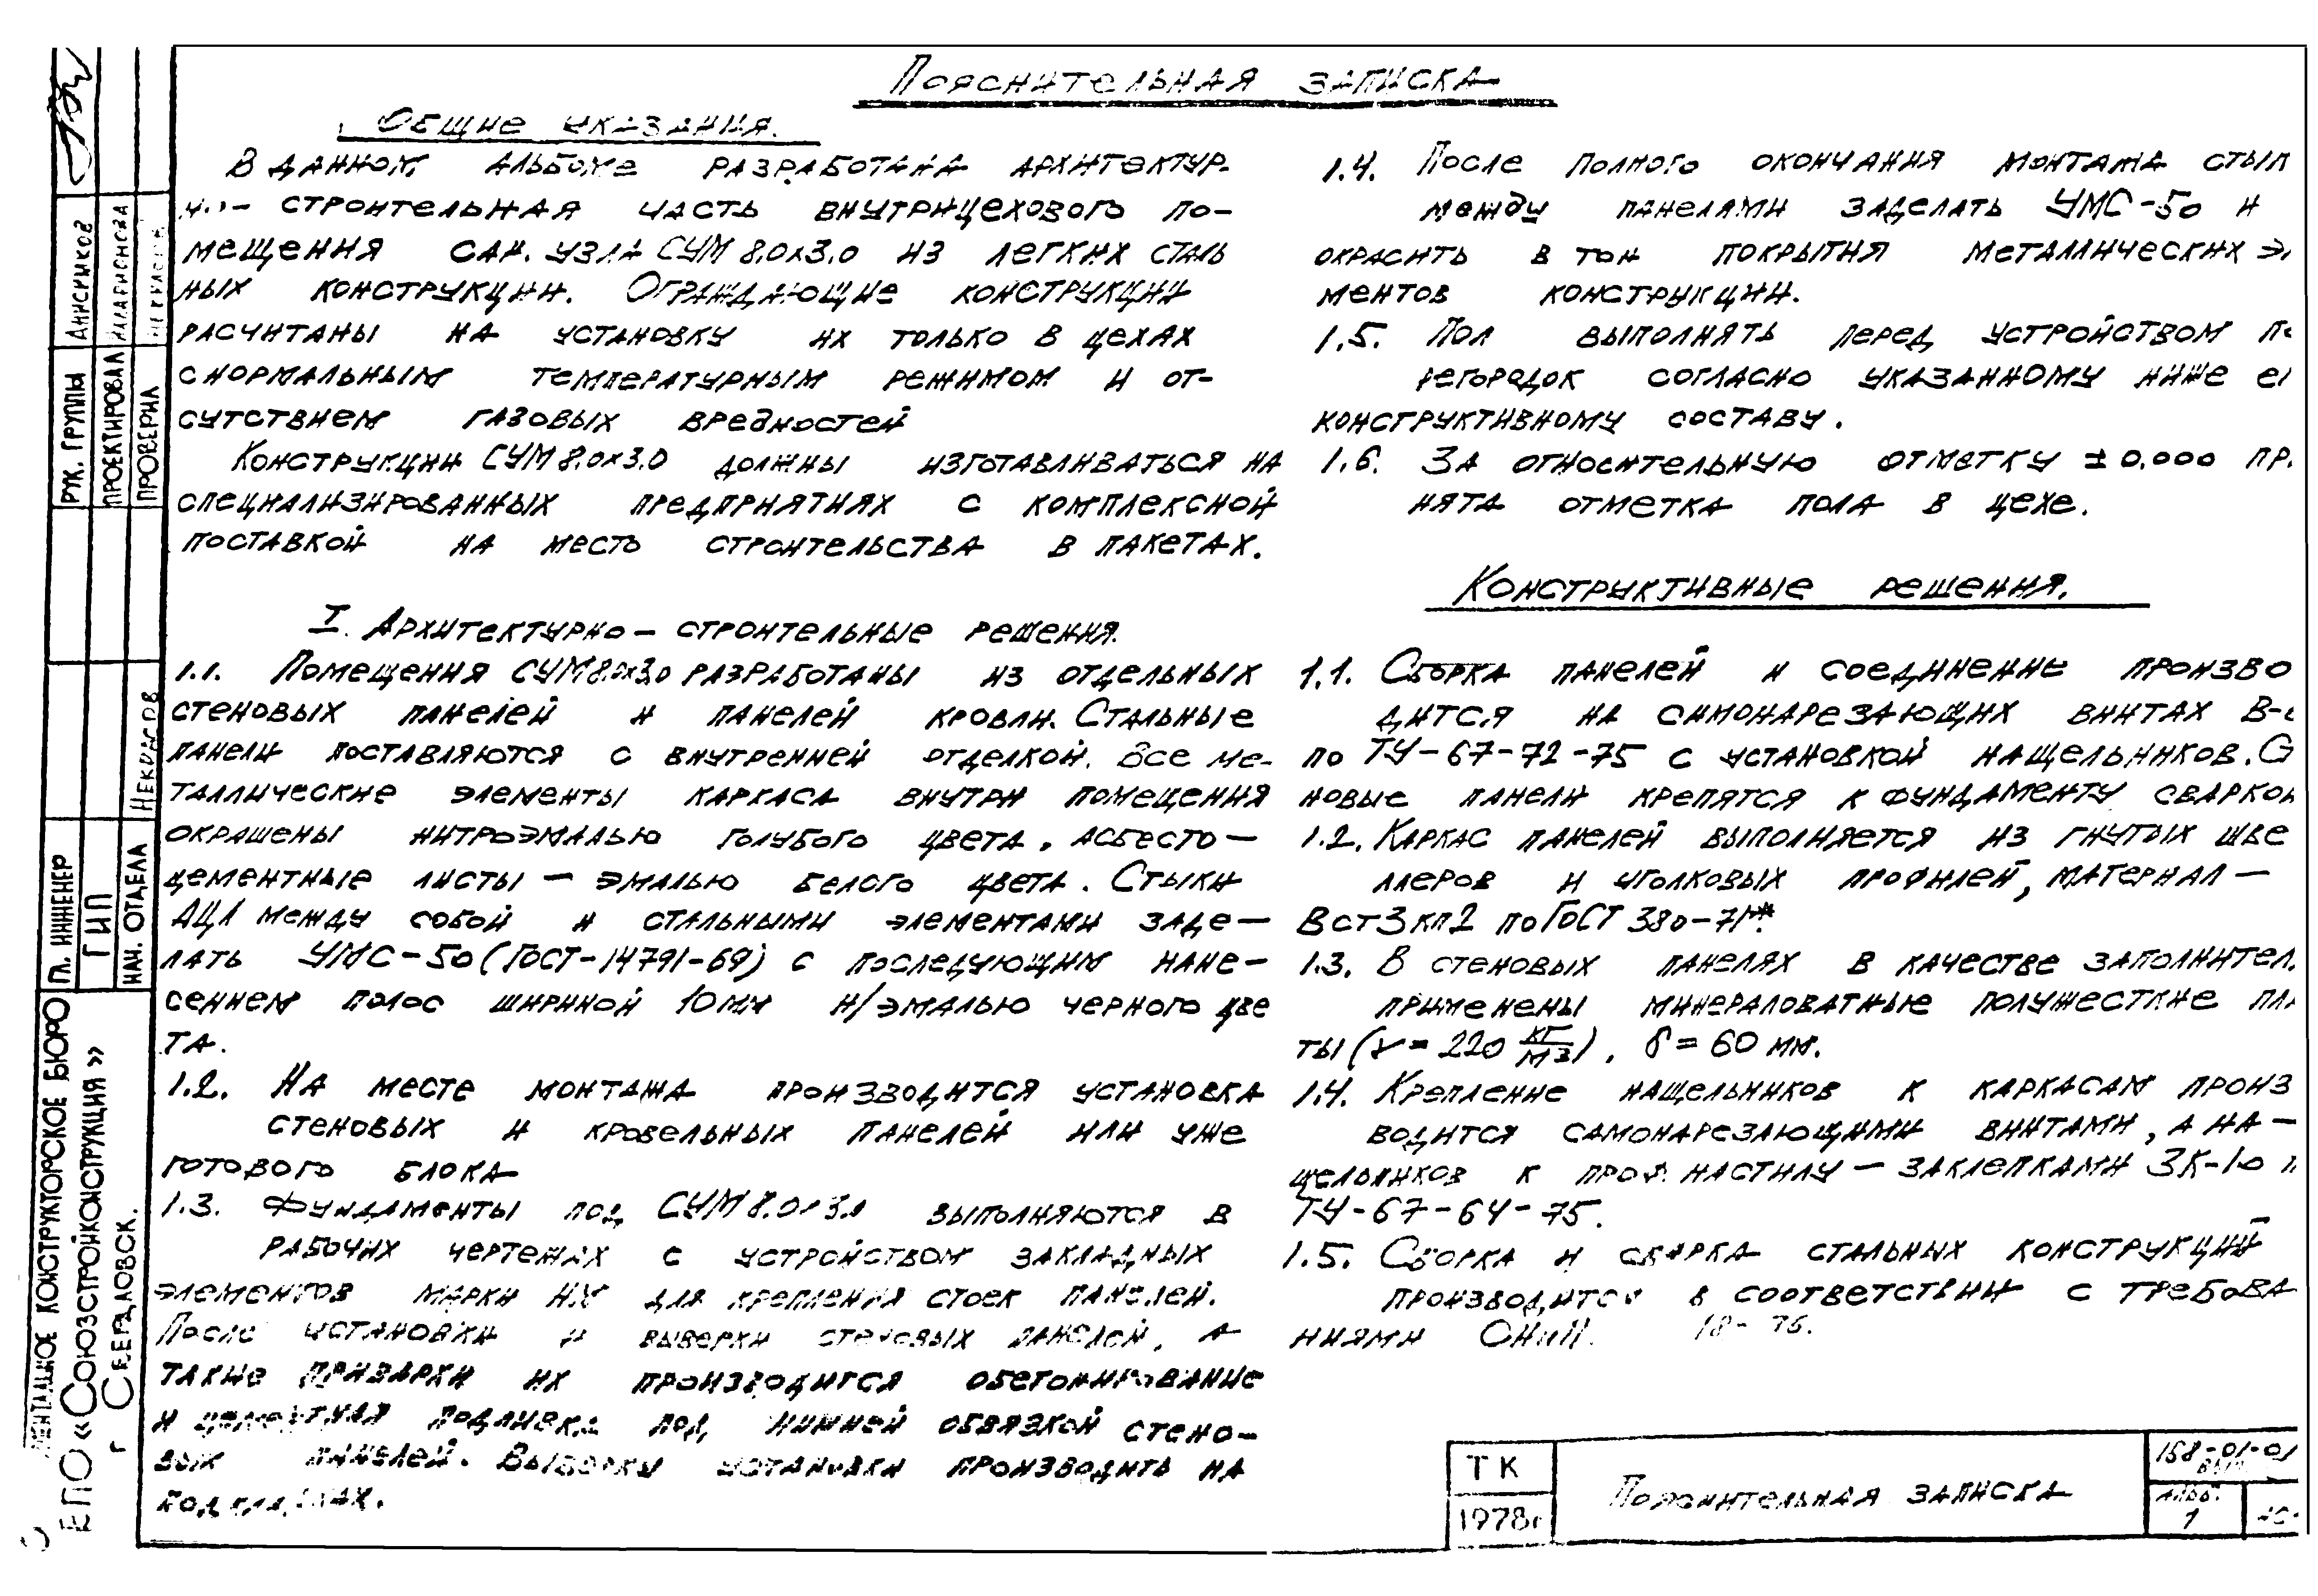 Пояснительная записка
Общие указания.
В данном альбоме разработана архитектур-
но- строительная часть внутрицехового по-
мещения сан. узла СУМ 8.0х3.0 из легких сталь
ных конструкции. Ограждающие конструкции
расчитаны на установку их только в цехах
с нормальным температурным режимом и от-
сутствием газовых вредностей
Конструкции СУМ 8.0х3.0 должны изготавливаться на
специализированных предприятиях с комплексной
поставкой на место строительства в пакетах.
I. Архитектурно – строительные решения.
1.1. Помещения СУМ 8.0х3.0 разработаны из отдельных
стеновых панелей и панелей кровли. Стальные
панели поставляются с внутренней отделкой. Все ме-
таллические элементы каркаса внутри помещения
окрашены нитроэмалью голубого цвета, асбесто –
цементные листы – эмалью белого цвета. Стыки
АЦЛ между собой и стальными элементами заде –
лать УМС-50 (ГОСТ-14791-69) с последующим нане –
сением полос шириной 10мм н/эмалью черного цве
та.
1.2. На месте монтажа производится установка
стеновых и кровельных панелей или уже
готового блока
1.3. Фундаменты под СУМ 8.0х3.0 выполняются в
рабочих чертежах с устройством закладных
элементов марки для крепления стоек панелей.
После установки и выверки стеновых панелей, а
также приварки их производится обетонирование
и цементная подливка под нижней обвязкой стено-
вых панелей. Выверку установки производить на
подкладках.
1.4. После полного окончания монтажа стык
между панелями заделать УМС-50 и
окрасить в тон покрытия металлических э
ментов конструкции.
1.5. Пол выполнять перед устройством пе
регородок согласно указанному ниже ег
конструктивному составу.
1.6. За относительную отметку ±0.000 пр
нята отметка пола в цехе.
Конструктивные решения.
1.1. Сборка панелей и соединение произво
дится на самонарезающих винтах В-
по ТУ-67-72-75 с установкой нащельников. С
новые панели крепятся к фундаменту сваркой
1.2. Каркас панелей выполняется из гнутых шве
ллеров и уголковых профилей, материал –
В ст 3 кп 2 по ГОСТ 380-71*.
1.3. В стеновых панелях в качестве заполнител
применены минераловатные полужесткие пли
ты (γ = 220 кг/м3), δ = 60 мм.
1.4. Крепление нащельников к каркасам произ
водится самонарезающими винтами, а на –
щельников к проф. настилу – заклепками ЗК-10 п
ТУ-67-64-75.
1.5. Сборка и сварка стальных конструкций
производится в соответствии с требова
ниями СНиП. 18-75.
ТК
1978г
Пояснительная записка
158-01-01
Альб.
1
Рук. группы Анисимков
Проектировал Илларионова
Проверил Некрасов
Гл. инженер
ГИП
Нач. отдела Некрасов
конструкторское бюро
ЕПО «Союзстройконструкция»
г Свердловск.